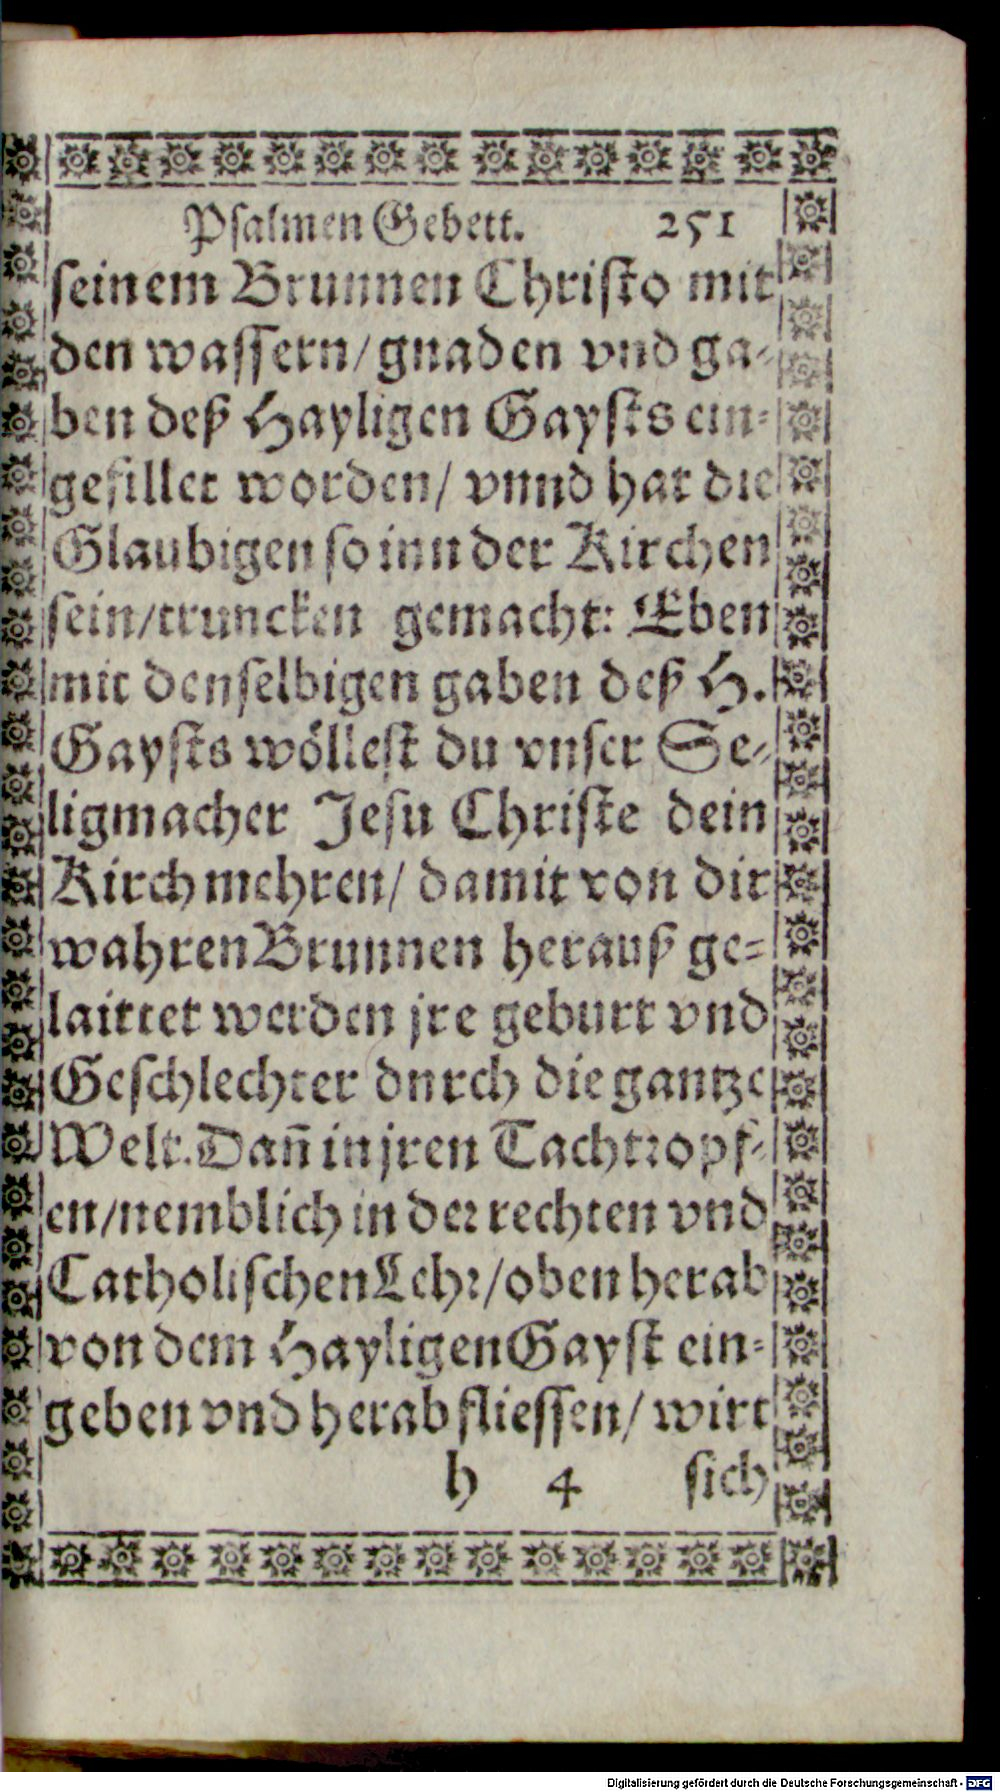 Psalmen Gebett. 251
seinem Brunnen Christo mit
den wassern/gnaden vnd ga-
ben deß Hayligen Gaysts ein-
gefillet worden/ vnnd hat die
Glaubigen so inn der Kirchen
sein/truncken gemacht: Eben
mit denselbigen gaben deß H.
Gaysts wöllest du vnser Se-
ligmacher Jesu Christe dein
Kirch mehren/ damit von dir
wahren Brunnen herauß ge-
laittet werden jre geburt vnd
Geschlechter durch die gantze
Welt. Dañ in jren Tachtropf-
en/nemblich in der rechten vnd
Catholischen Lehr/oben herab
von dem Hayligen Gayst ein-
geben vnd herab fliessen/ wirt
h 4 sich
Digitalisierung gefördert durch die Deutsche Forschungsgemeinschaft - DFG